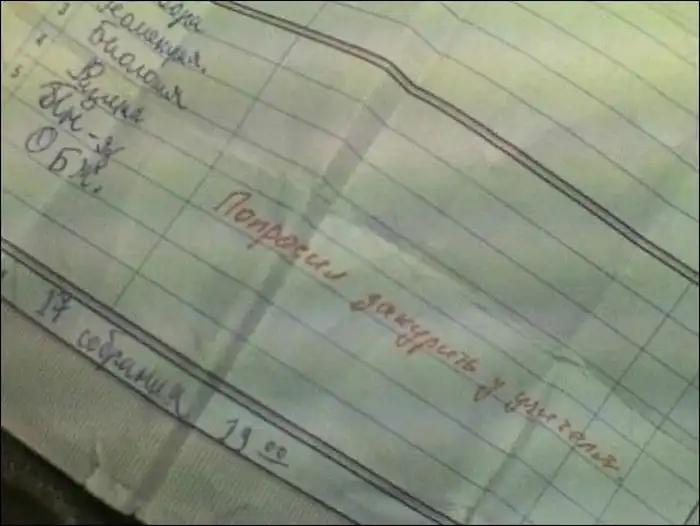 3
Геометрия.
4 Биология
5 Физика
ин-яз
ОБЖ.
Попросил закурить у учителя
17 собрания 19 00